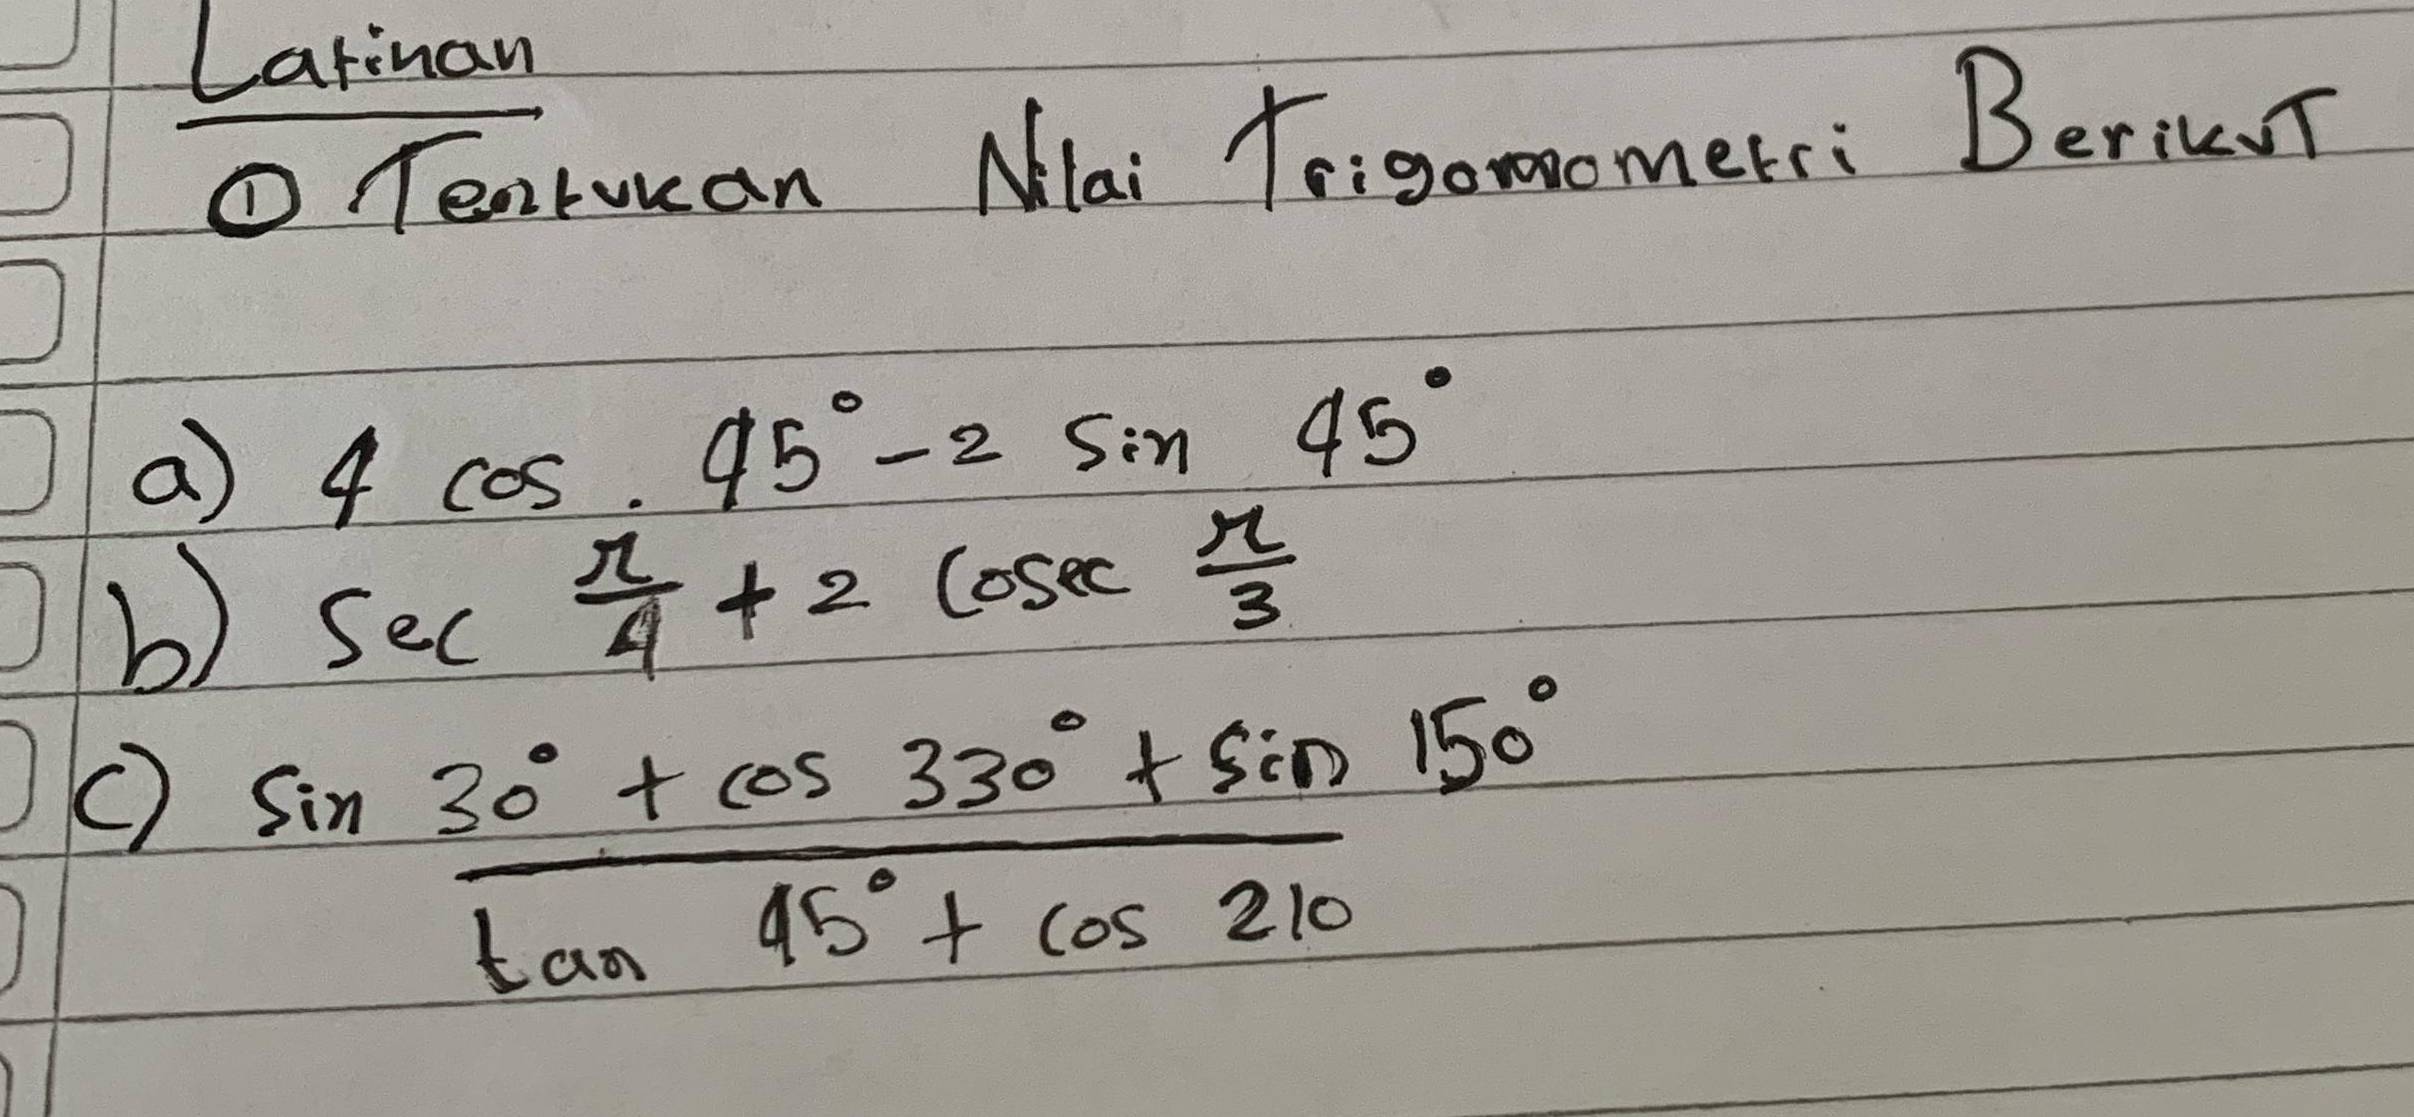 Latihan
① Tentukan Nilai Trigonomometri Berikut
a) 4 cos. 45° - 2 sin 45°
b) sec π/4 + 2 cosec π/3
c) sin 30° + cos 330° + sin 150°
tan 45° + cos 210